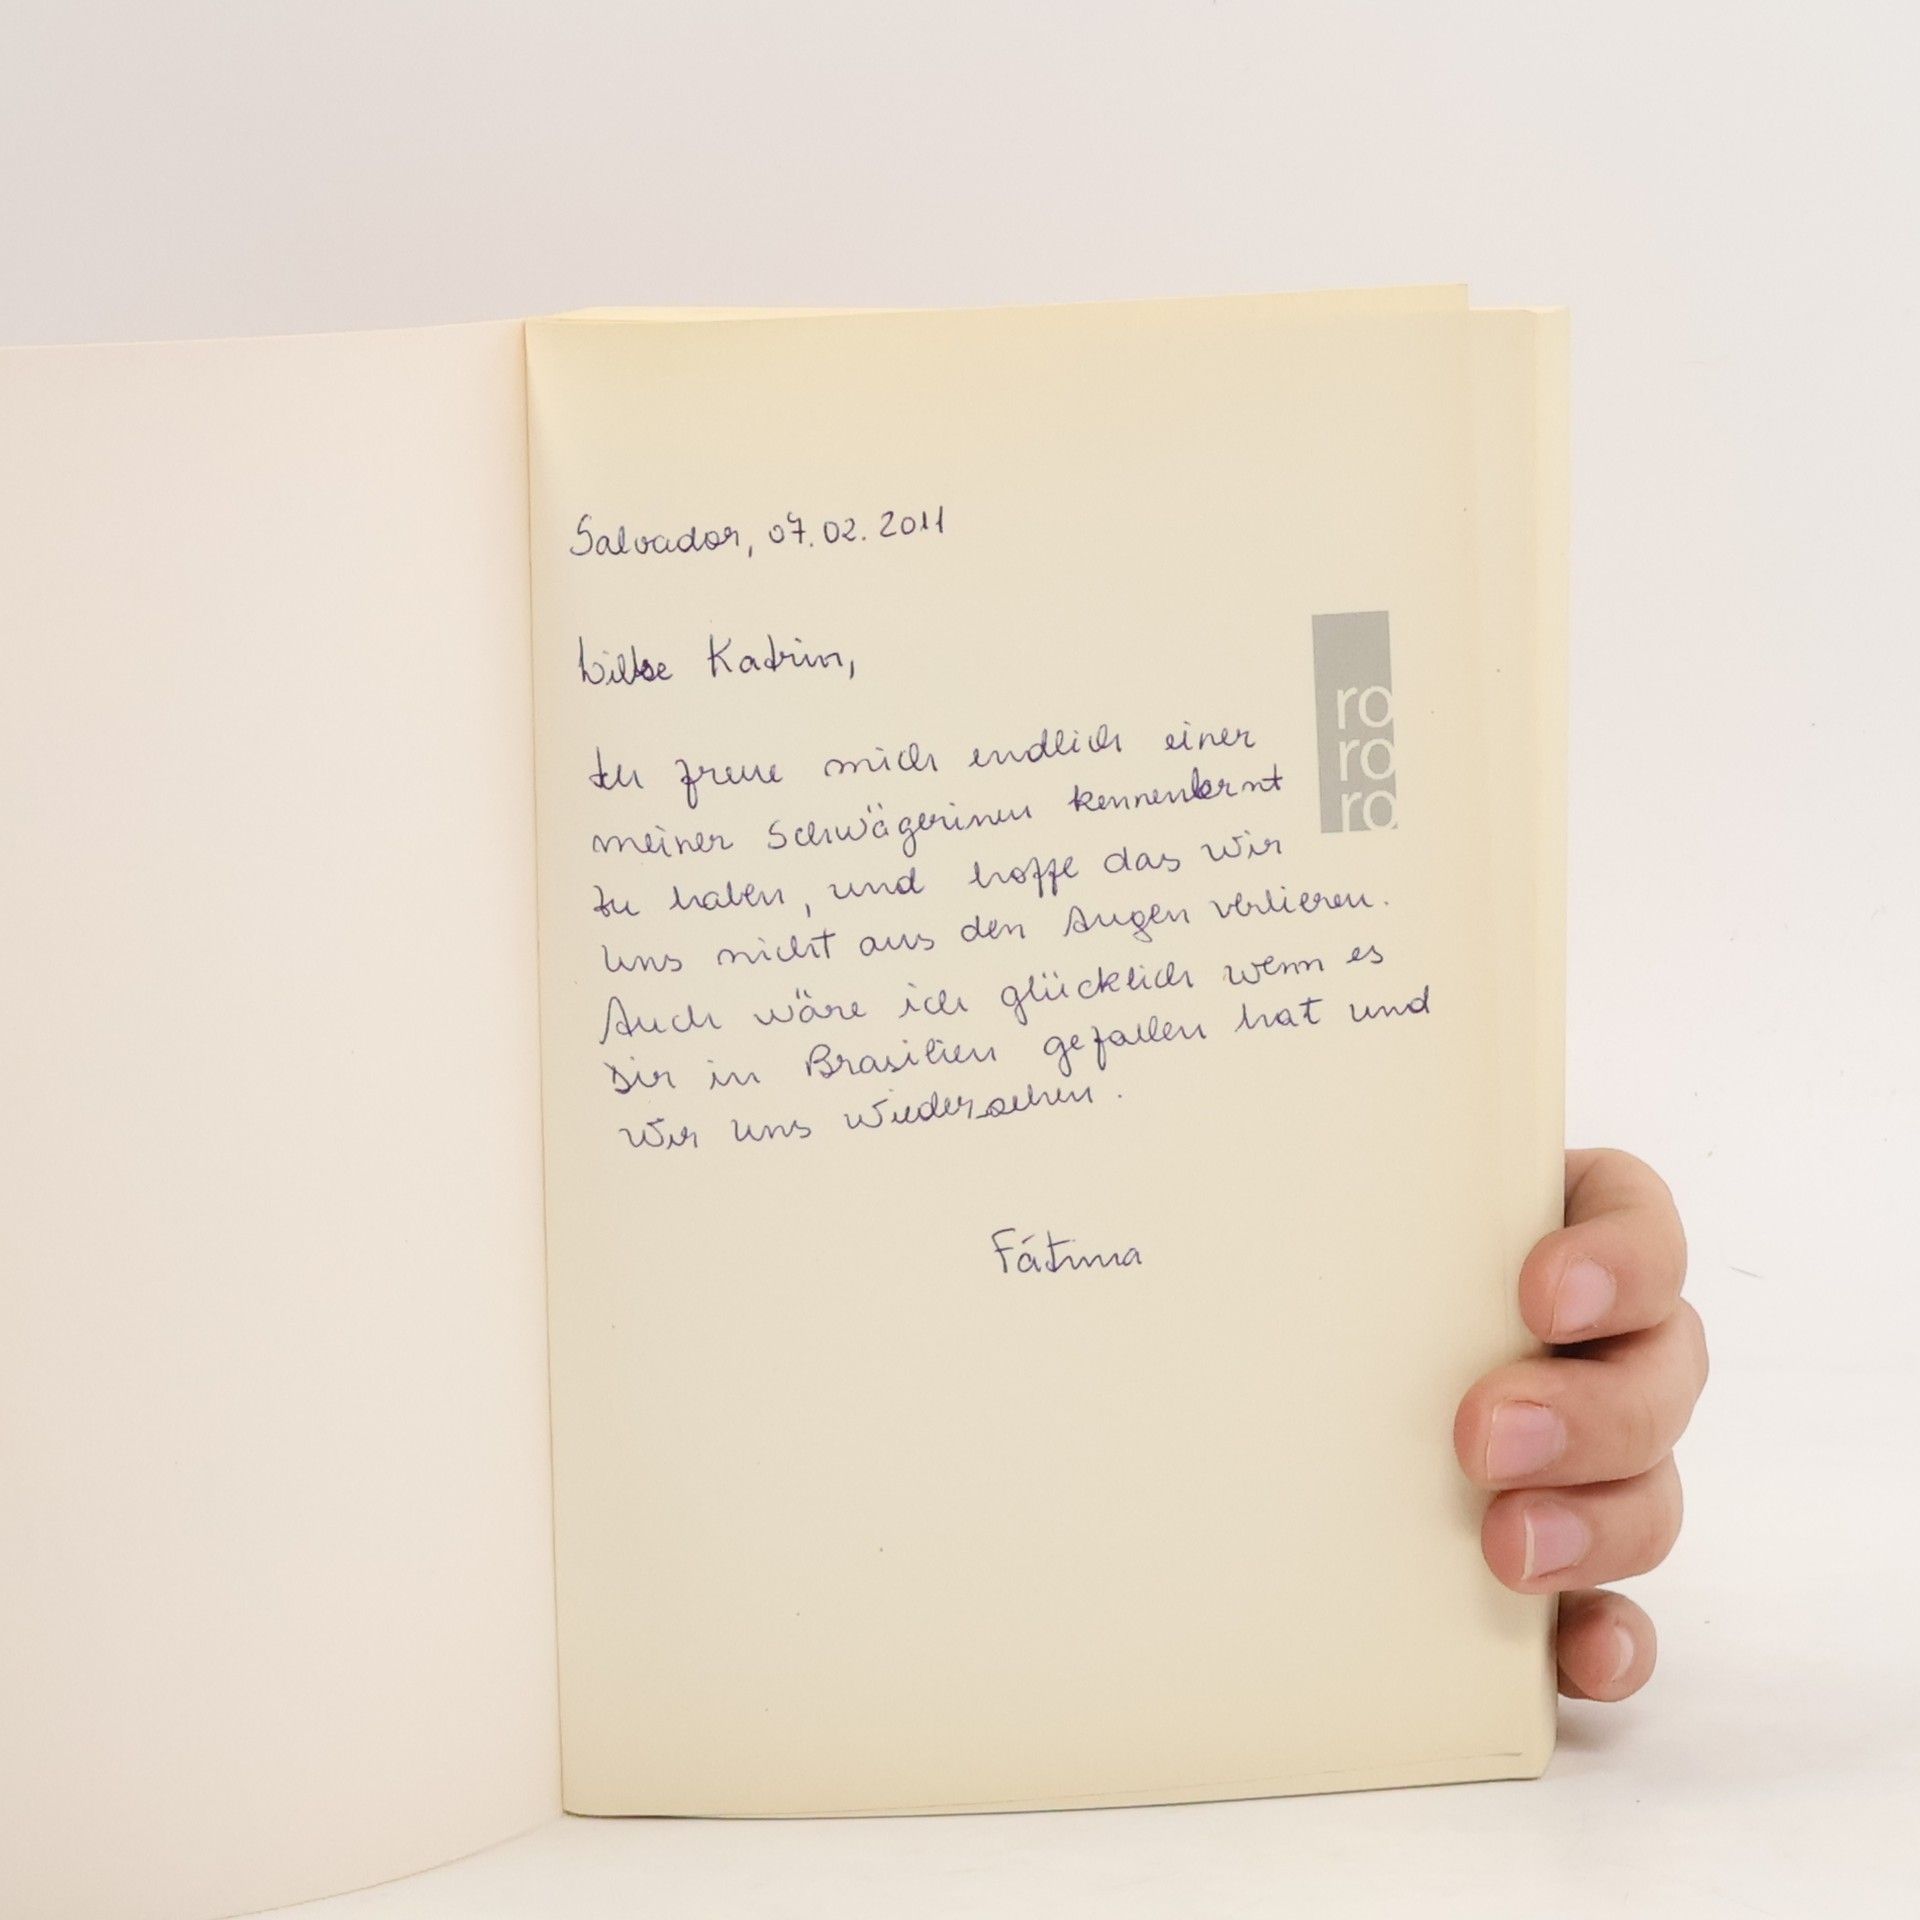 Salvador, 07.02.2011
Liebe Katrin,
Ich freue mich endlich einer
meiner Schwägerinen kennenlernt
zu haben, und hoffe das wir
uns nicht aus den Augen verlieren.
Auch wäre ich glücklich wenn es
Dir in Brasilien gefallen hat und
wir uns wiedersehen.
Fátima
ro
ro
ro